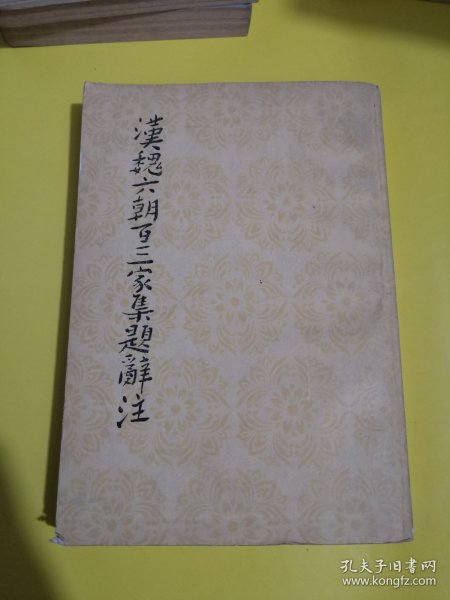 漢魏六朝百三家集題辭注
孔夫子旧书网
www.kongfz.com